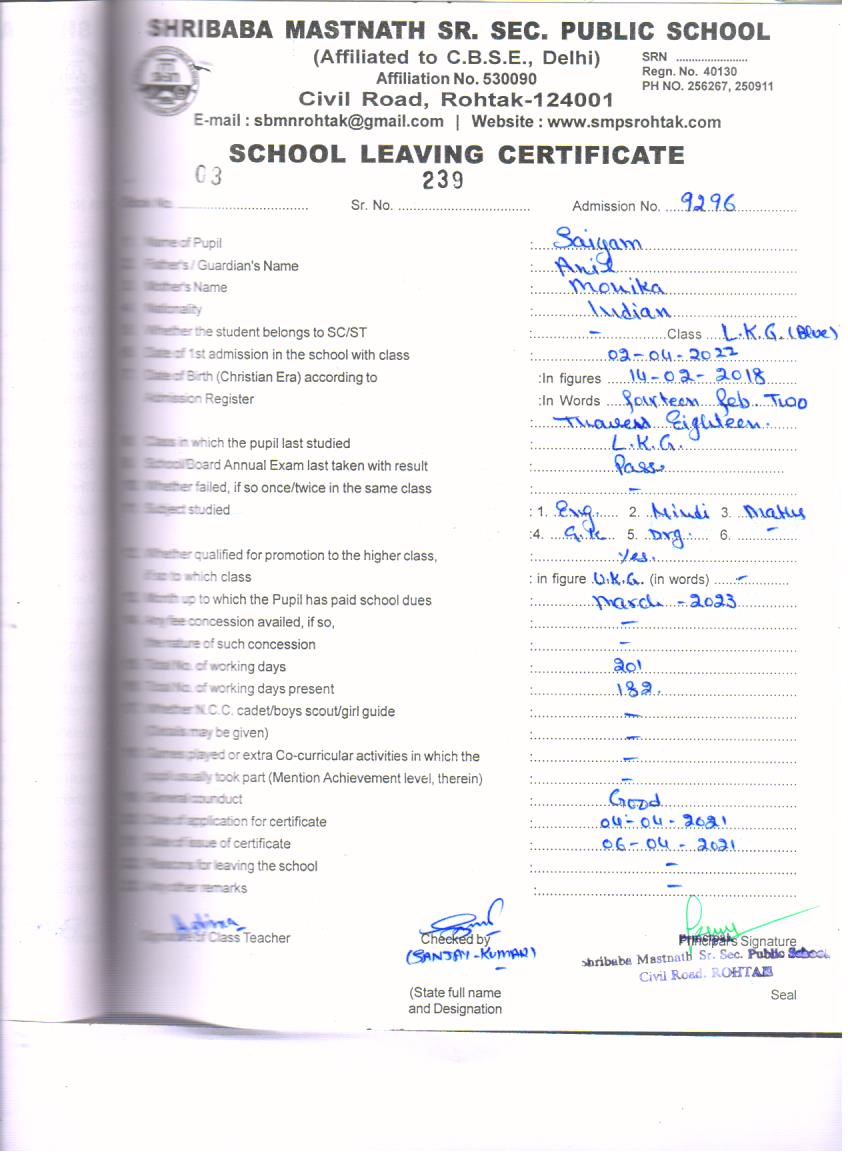 SHRIBABA MASTNATH SR. SEC. PUBLIC SCHOOL
(Affiliated to C.B.S.E., Delhi)
SRN ........................
Affiliation No. 530090
Regn. No. 40130
Civil Road, Rohtak-124001
PH NO. 256267, 250911
E-mail : sbmnrohtak@gmail.com | Website : www.smpsrohtak.com
SCHOOL LEAVING CERTIFICATE
03 239
Book No. .................... Sr. No. .................... Admission No. 9296
1. Name of Pupil : Saiyam
2. Father's / Guardian's Name : Anil
3. Mother's Name : Monika
4. Nationality : Indian
5. Whether the student belongs to SC/ST : - Class L.K.G. (Blue)
6. Date of 1st admission in the school with class : 02-04-2022
7. Date of Birth (Christian Era) according to :In figures 14-02-2018
Admission Register :In Words Fourteen Feb. Two
Eighteen.
8. Class in which the pupil last studied : L.K.G.
9. School/Board Annual Exam last taken with result : Pass
10. Whether failed, if so once/twice in the same class : -
11. Subject studied : 1. Eng. 2. Hindi 3. Maths
:4. G.K 5. Drg. 6. -
12. Whether qualified for promotion to the higher class, : Yes.
if so to which class : in figure U.K.G. (in words) -
13. Month up to which the Pupil has paid school dues : March - 2023
14. Any fee concession availed, if so, : -
the nature of such concession : -
15. Total No. of working days : 201
16. Total No. of working days present : 182.
17. Whether N.C.C. cadet/boys scout/girl guide : -
(Details may be given) : -
18. Games played or extra Co-curricular activities in which the : -
pupil usually took part (Mention Achievement level, therein) : -
19. General counduct : Good
20. Date of application for certificate : 04-04-2021
21. Date of issue of certificate : 06-04-2021
22. Reasons for leaving the school : -
23. Any other remarks : -
Signature of Class Teacher Checked by Signature
(SANJAY-KUMAR) Shribaba Mastnath Sr. Sec. Public School
Civil Road. ROHTAK
(State full name Seal
and Designation